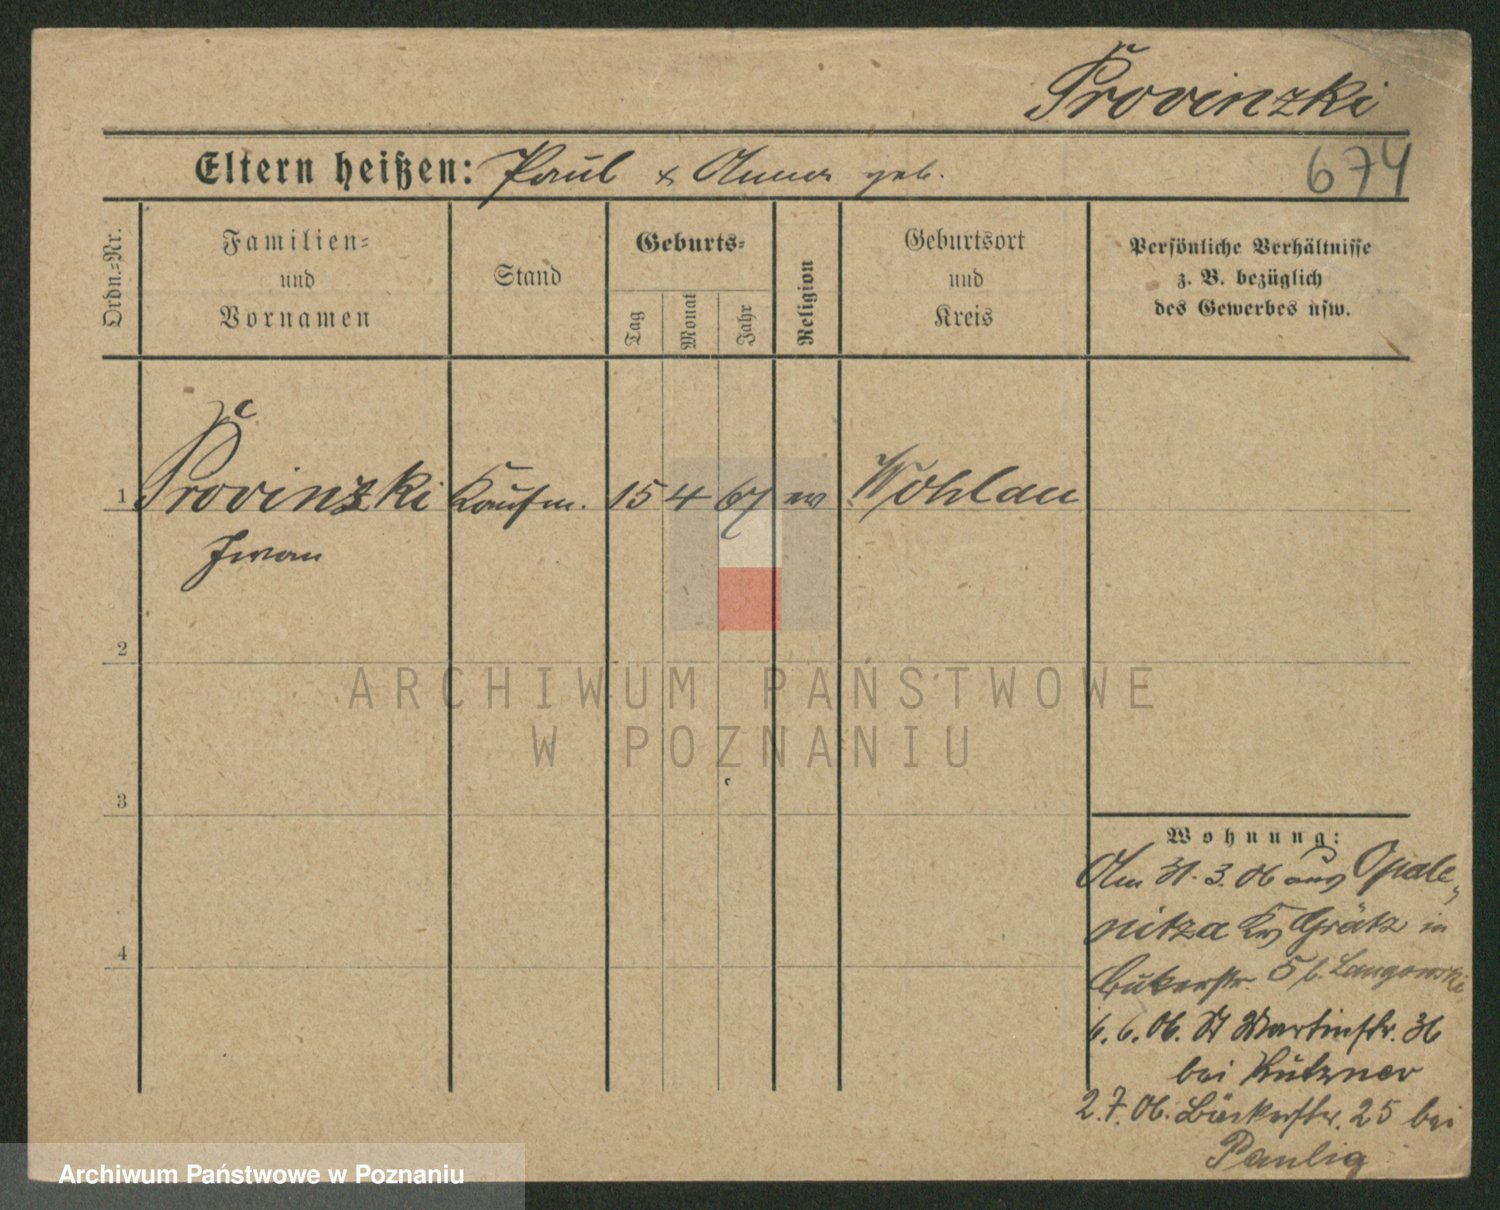 Provinzki
Eltern heißen: Paul & Anna geb.
674
Ordn.-Nr.
Familien-
und
Vornamen
Stand
Geburts-
Tag
Monat
Jahr
Religion
Geburtsort
und
Kreis
Persönliche Verhältnisse
z. B. bezüglich
des Gewerbes usw.
1 Provinzki Kaufm. 15 4 67 ev Wohlau
Iwan
2
ARCHIWUM PAŃSTWOWE
W POZNANIU
3
Wohnung:
Am 31.3.06 aus Opale-
nitza Kr Grätz in
Bukerstr. 5 b. Langowski
4
6.6.06. St Martinstr. 36
bei Kützner
2.7.06. Bäckerstr. 25 bei
Paulig
Archiwum Państwowe w Poznaniu